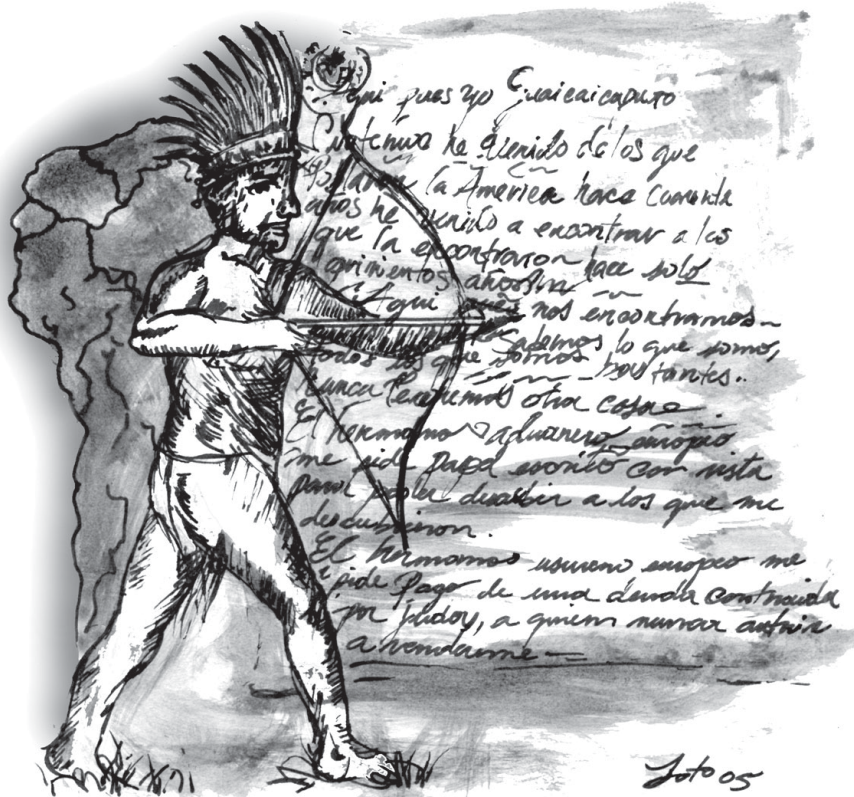 pues yo Guaicaicapuro
he venido de los que
la America hace Cuarenta
años he venido a encontrar a los
que la encontraron hace solo
años
Aqui pues nos encontramos
Sabemos lo que somos,
que somos bastantes..
Nunca otra cosa.
El hermano aduanero europeo
me pide papel escrito con vista
para poder descubrir a los que me
descubrieron.
El hermano usurero europeo me
pide Pago de una deuda contraida
por a quien nunca
a venderme
05